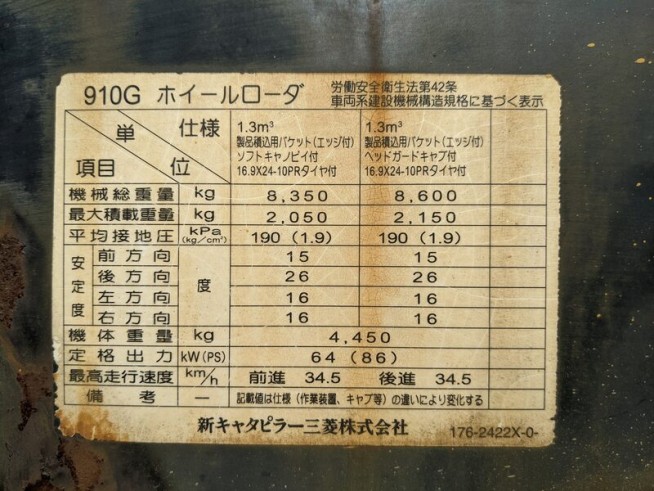 910G ホイールローダ
労働安全衛生法第42条
車両系建設機械構造規格に基づく表示
仕様
単
位
項目
1.3m³
製品積込用バケット(エッジ付)
ソフトキャノピイ付
16.9X24-10PRタイヤ付
1.3m³
製品積込用バケット(エッジ付)
ヘッドガードキャブ付
16.9X24-10PRタイヤ付
機械総重量 kg 8,350 8,600
最大積載重量 kg 2,050 2,150
平均接地圧 kPa (kg/cm²) 190 (1.9) 190 (1.9)
安定度 度
前方向 15 15
後方向 26 26
左方向 16 16
右方向 16 16
機体重量 kg 4,450
定格出力 kW(PS) 64 (86)
最高走行速度 km/h 前進 34.5 後進 34.5
備考 — 記載値は仕様(作業装置、キャブ等)の違いにより変化する
新キャタピラー三菱株式会社
176-2422X-0-